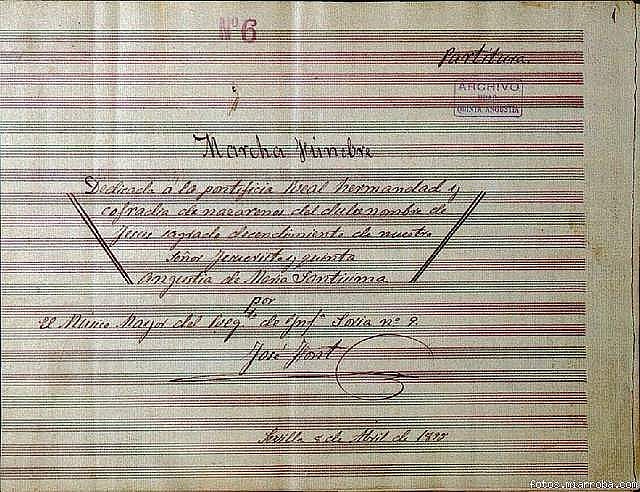 Nº 6
Partitura.
ARCHIVO
QUINTA ANGUSTIA
Marcha Fúnebre
Dedicada á la pontificia Real hermandad y
cofradia de nazarenos del dulce nombre de
Jesus sagrado descendimiento de nuestro
Señor Jesucristo y quinta
Angustia de Maria Santisima
por
El Musico Mayor del Reg.to de Ynf.a Soria nº 9.
José Font
Sevilla 5 de Abril de
fotos.miarroba.com